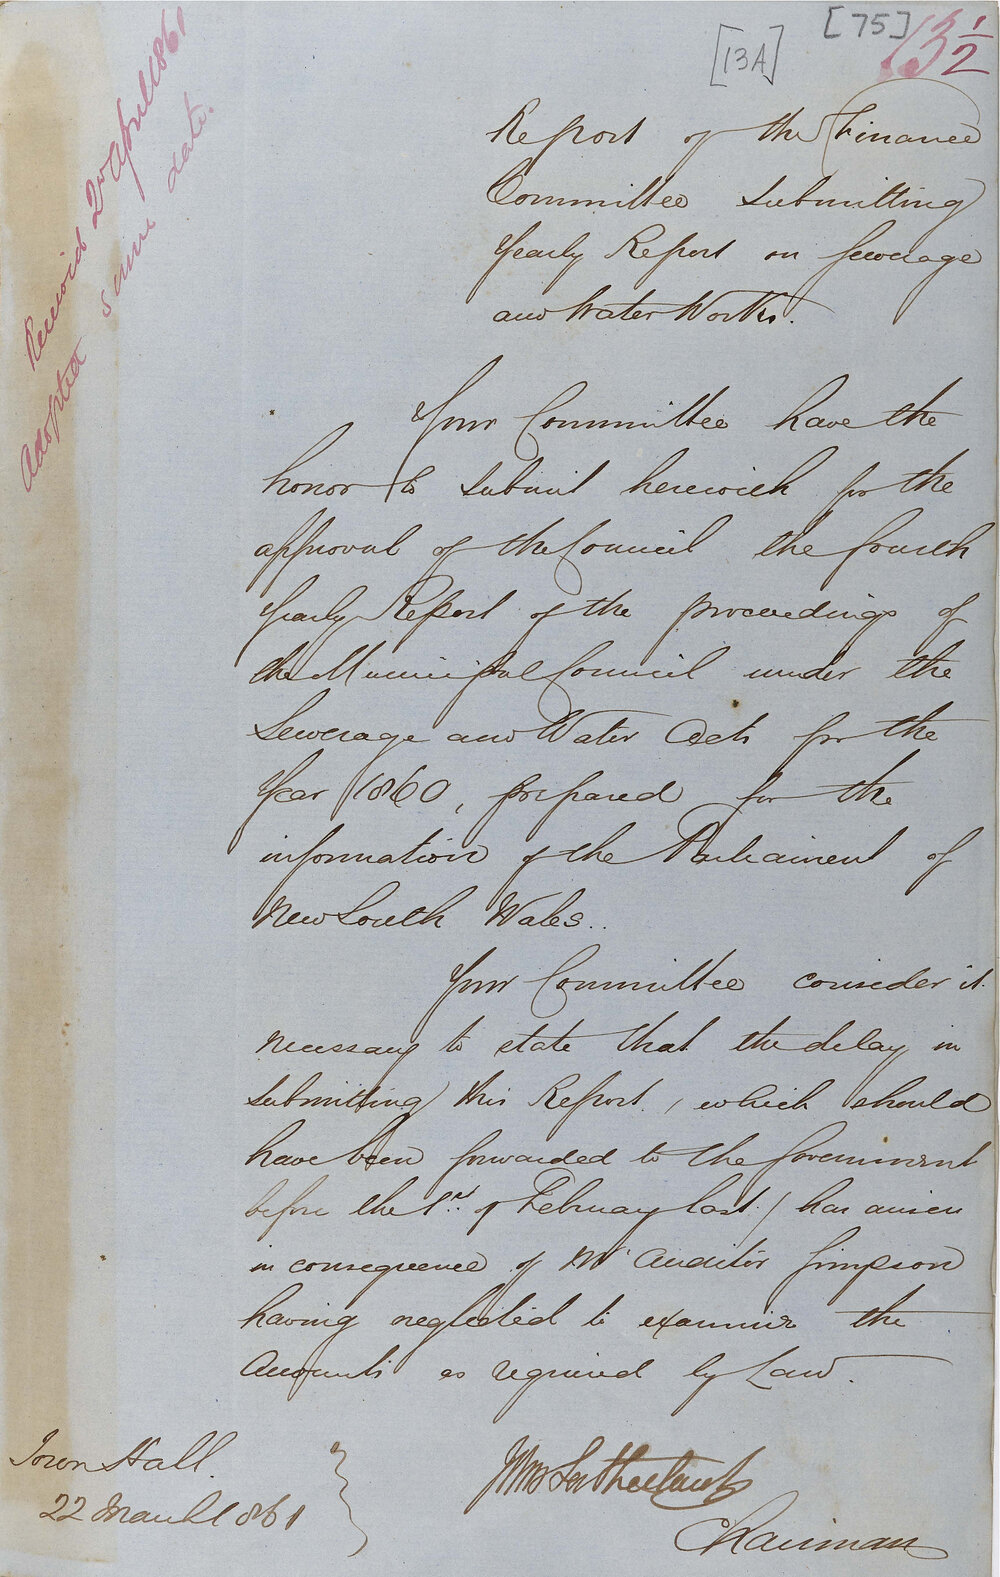 [13A]
[75]
13 1/2
Received 2nd April 1861
Adopted same date.
Report of the Finance
Committee submitting
Yearly Report on Sewerage
and Water Works.
Your Committee have the
honor to submit herewith for the
approval of the Council the fourth
Yearly Report of the proceedings of
the Municipal Council under the
Sewerage and Water Acts for the
Year 1860, prepared for the
information of the Parliament of
New South Wales..
Your Committee consider it
necessary to state that the delay in
submitting this Report, (which should
have been forwarded to the Government
before the 1st. of February last.) has arisen
in consequence of Mr Auditor Simpson
having neglected to examine the
Accounts as required by Law.
Town Hall.
22 March 1861
Sutherland
Chairman